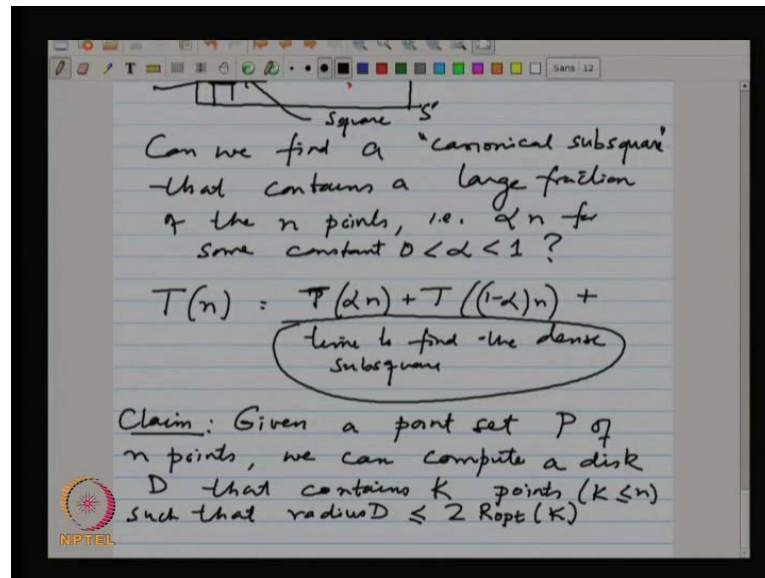 T
Sans 12
Square S'
Can we find a "canonical subsquare"
that contains a large fraction
of the n points, i.e. αn for
some constant 0 < α < 1 ?
T(n) = T(αn) + T((1-α)n) +
time to find the dense
subsquare
Claim: Given a point set P of
n points, we can compute a disk
D that contains K points (K ≤ n)
such that radius D ≤ 2 Ropt(K)
NPTEL